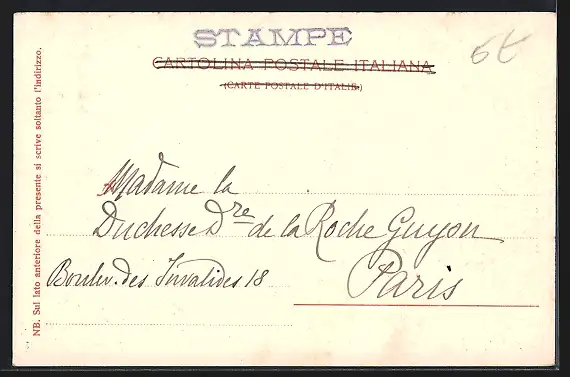 STAMPE
CARTOLINA POSTALE ITALIANA
(CARTE POSTALE D'ITALIE)
6t
Madame la
Duchesse Dre de la Roche Guyon
Boulev. des Invalides 18
Paris
NB. Sul lato anteriore della presente si scrive soltanto l'indirizzo.